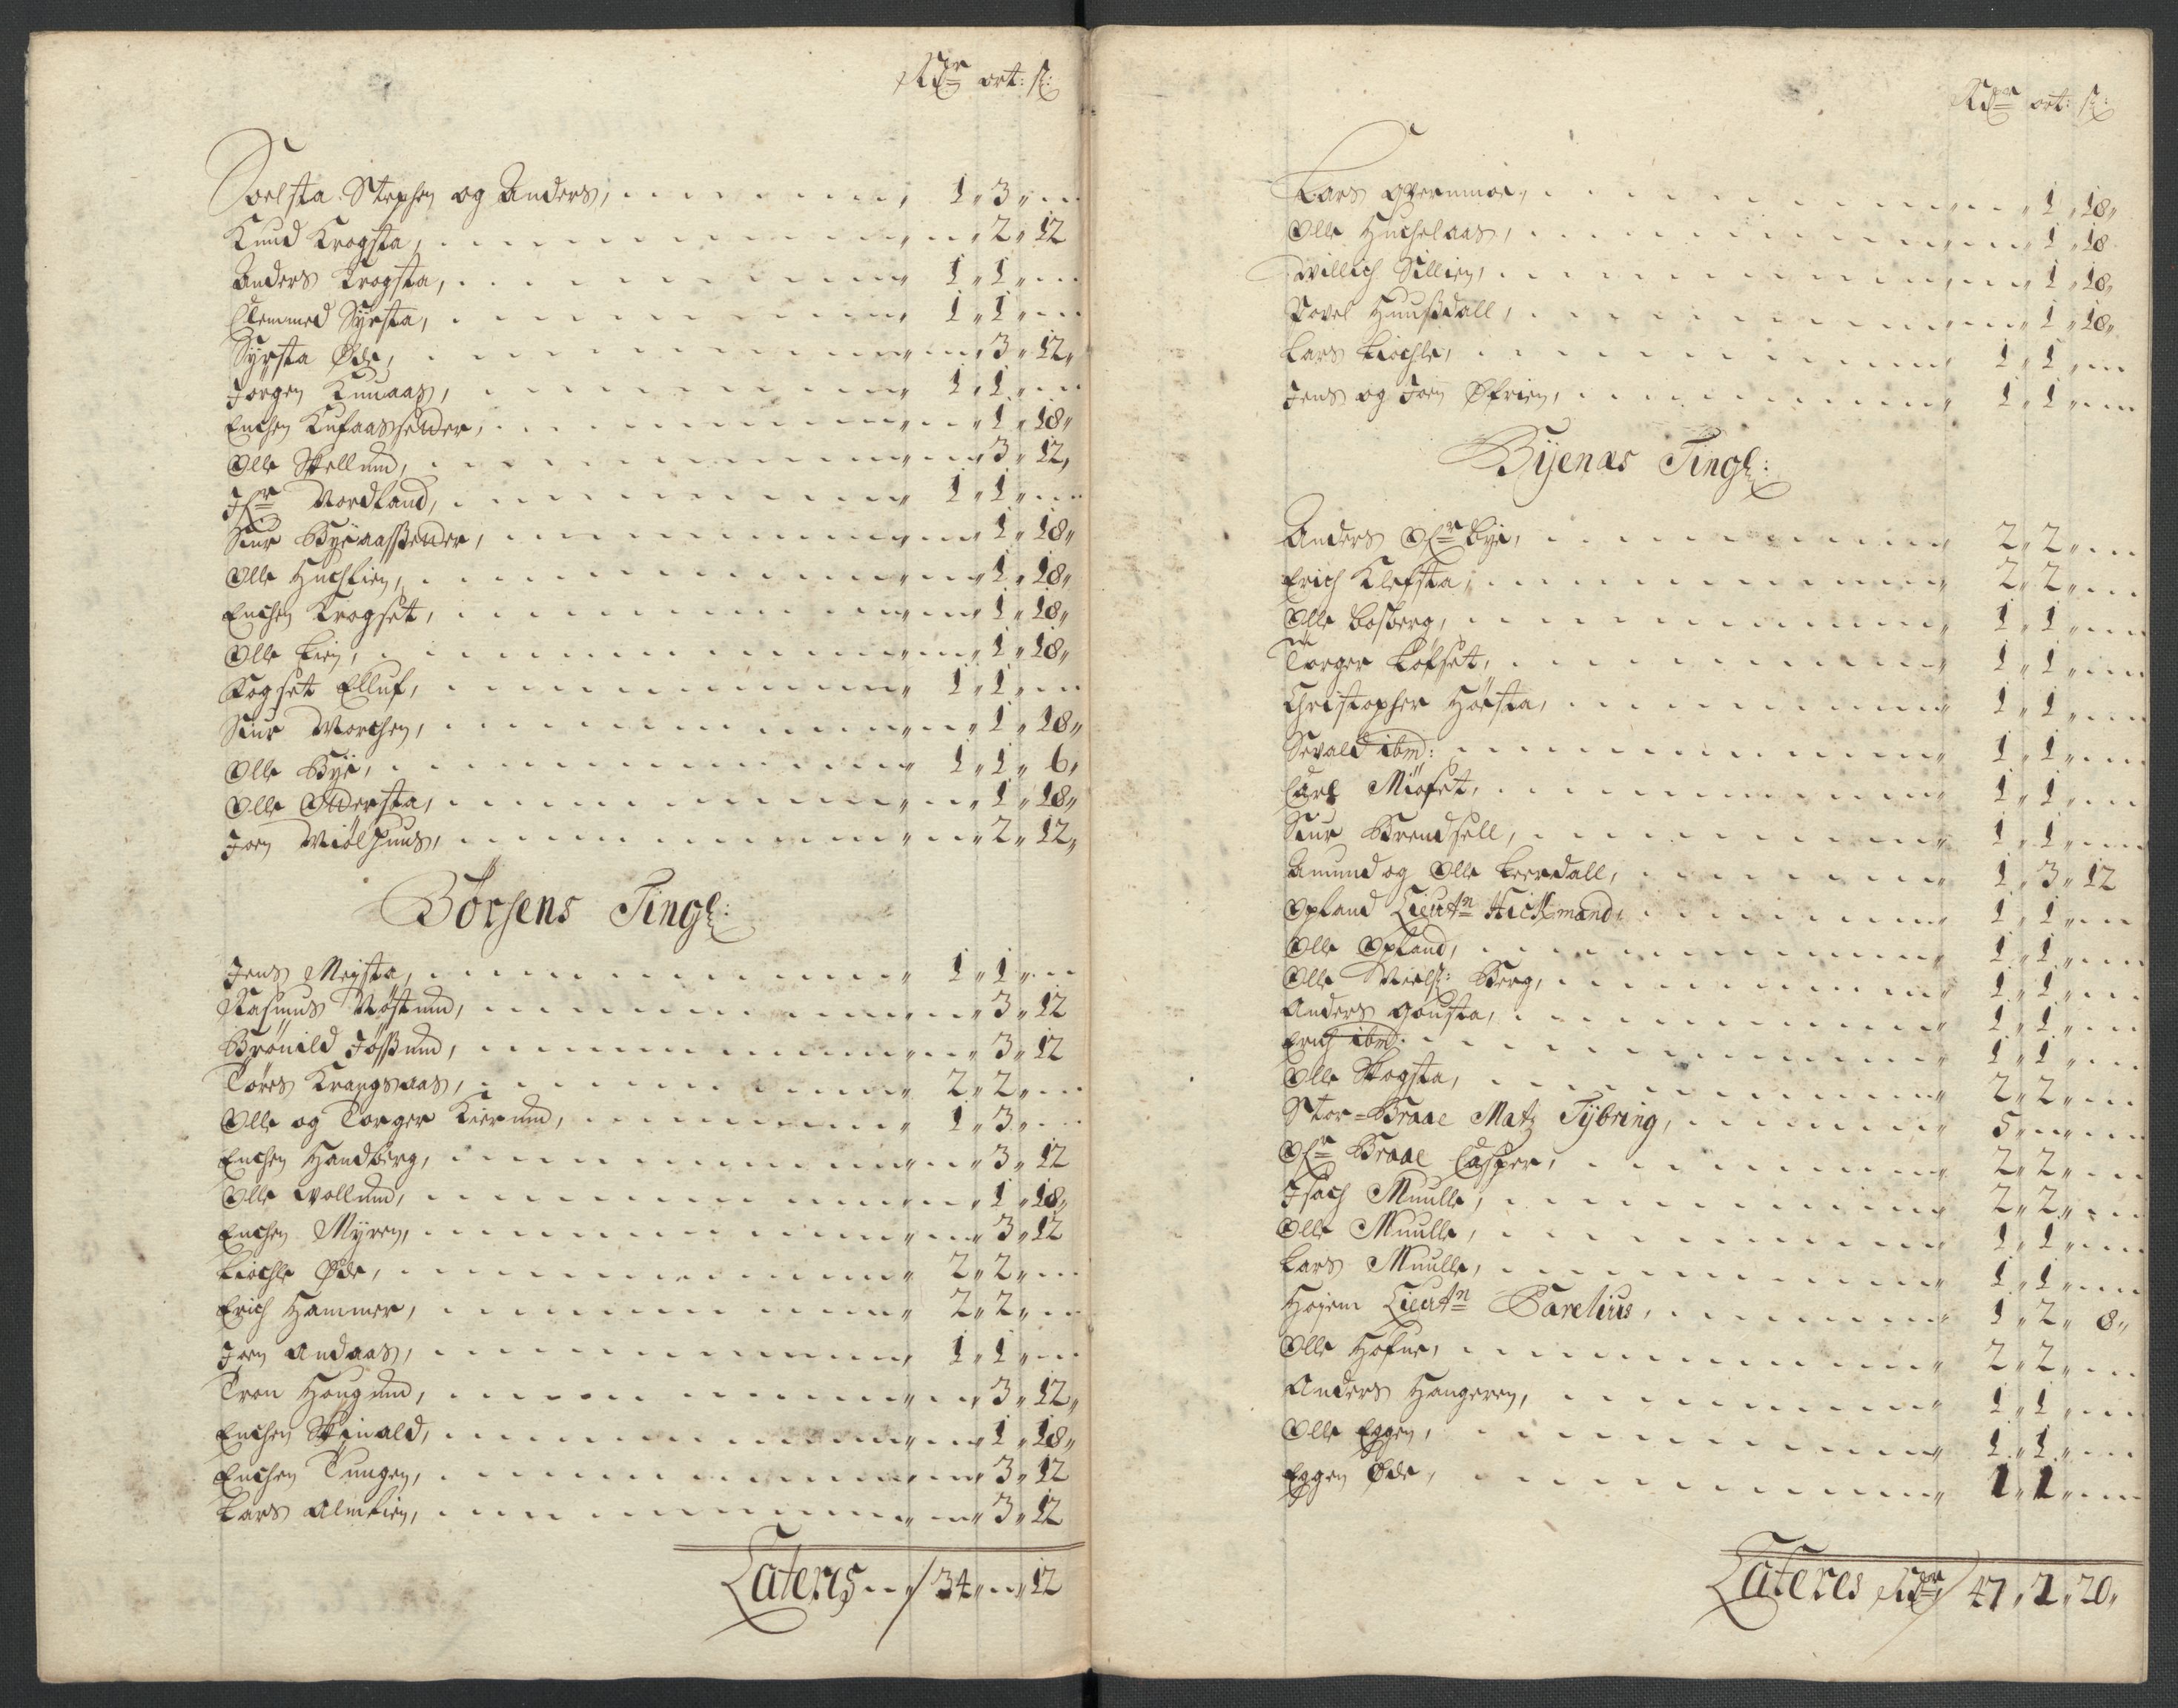 Rdr ort: s:
Soelsta Stephen og Anders, 1 „ 3 „
Knud Krogsta, 2 „ 12
Anders Krogsta, 1 „ 1 „
Clemmed Syrsta, 1 „ 1 „
Syrsta Øde, 3 „ 12 „
Jørgen Knuaas, 1 „ 1 „
Enchen Kufaassender, 1 „ 18 „
Olle Skellum, 3 „ 12 „
Jfr Nordland, 1 „ 1 „
Siur Byeaassender, 1 „ 18 „
Olle Huchlien, 1 „ 18 „
Enchen Krogset, 1 „ 18 „
Olle Lien, 1 „ 18 „
Rogset Elluf, 1 „ 1 „
Siur Worchen, 1 „ 18 „
Olle Bye, 1 „ 1 „ 6 „
Olle Oldersta, 1 „ 18 „
Joen Miølhuus, 2 „ 12 „
Børsens Tingl:
Jens Meysta, 1 „ 1 „
Rasmus Vøstum, 3 „ 12
Brønild Jøssum, 3 „ 12
Tøres Krangsaas, 2 „ 2 „
Olle og Torger Kierum, 1 „ 3 „
Enchen Handberg, 3 „ 12
Olle Wollum, 1 „ 18 „
Enchen Myren, 3 „ 12
Liøchle Øde, 2 „ 2 „
Erich Hammer, 2 „ 2 „
Joen Andaas, 1 „ 1 „
Tron Hougum, 3 „ 12 „
Enchen Skinald, 1 „ 18 „
Enchen Tungen, 3 „ 12
Lars Almlien, 3 „ 12
Lateris 34 „ „ 12
Rdr ort: s:
Lars Overmoe, 1 „ 18 „
Olle Huchelaas, 1 „ 18
Willich Villien, 1 „ 18 „
Povel Huussdall, 1 „ 18 „
Lars Liøchle, 1 „ 1 „
Jens og Joen Øfrien, 1 „ 1 „
Bijenæs Tingl:
Anders Ofr Bye, 2 „ 2 „
Erich Klefsta, 2 „ 2 „
Olle Bosberg, 1 „ 1 „
Torger Løfset, 1 „ 1 „
Christopher Høista, 1 „ 1 „
Sevald ibm: 1 „ 1 „
Carl Miøset, 1 „ 1 „
Siur Brendsell, 1 „ 1 „
Amund og Olle Leerdall, 1 „ 3 „ 12
Opland Lieutn Hickmand, 1 „ 1 „
Olle Opland, 1 „ 1 „
Olle Nielss: Berg, 1 „ 1 „
Anders Gousta, 1 „ 1 „
Erich ibm. 1 „ 1 „
Olle Skogsta, 2 „ 2 „
Stor-Braae Matz Tÿbring, 5 „
Ofr Braae Casper, 2 „ 2 „
Jsach Muulle, 2 „ 2 „
Olle Muulle, 1 „ 1 „
Lars Muulle, 1 „ 1 „
Højem Lieutn Parelius, 1 „ 2 „ 8 „
Olle Høfne, 2 „ 2 „
Anders Hangeren, 1 „ 1 „
Olle Eggen, 1 „ 1 „
Eggen Øde, 1 „ 1 „
Lateres Rdr 47 „ 2 „ 20 „